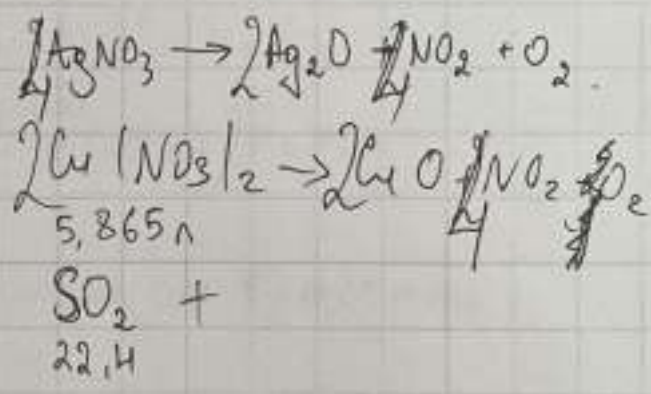 4AgNO₃ → 2Ag₂O + 4NO₂ + O₂.
2Cu(NO₃)₂ → 2CuO + 4NO₂ + O₂
5,865л
SO₂ +
22,4